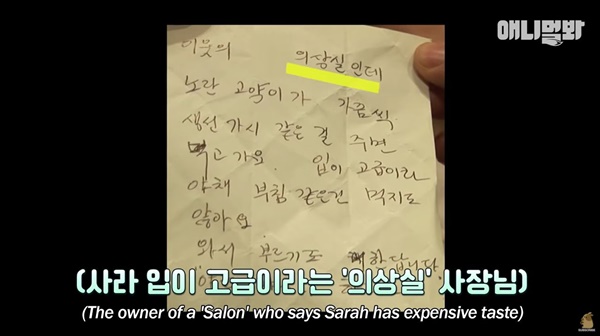 애니멀봐
이웃의 의상실인데
노란 고약이가 가끔씩
생선가시 같은걸 주면
먹고가요. 입이 고급이라
야채 부침 같은건 먹지도
않아요
와서 부르기도 한답니다.
(사라 입이 고급이라는 '의상실' 사장님)
(The owner of a 'Salon' who says Sarah has expensive taste)